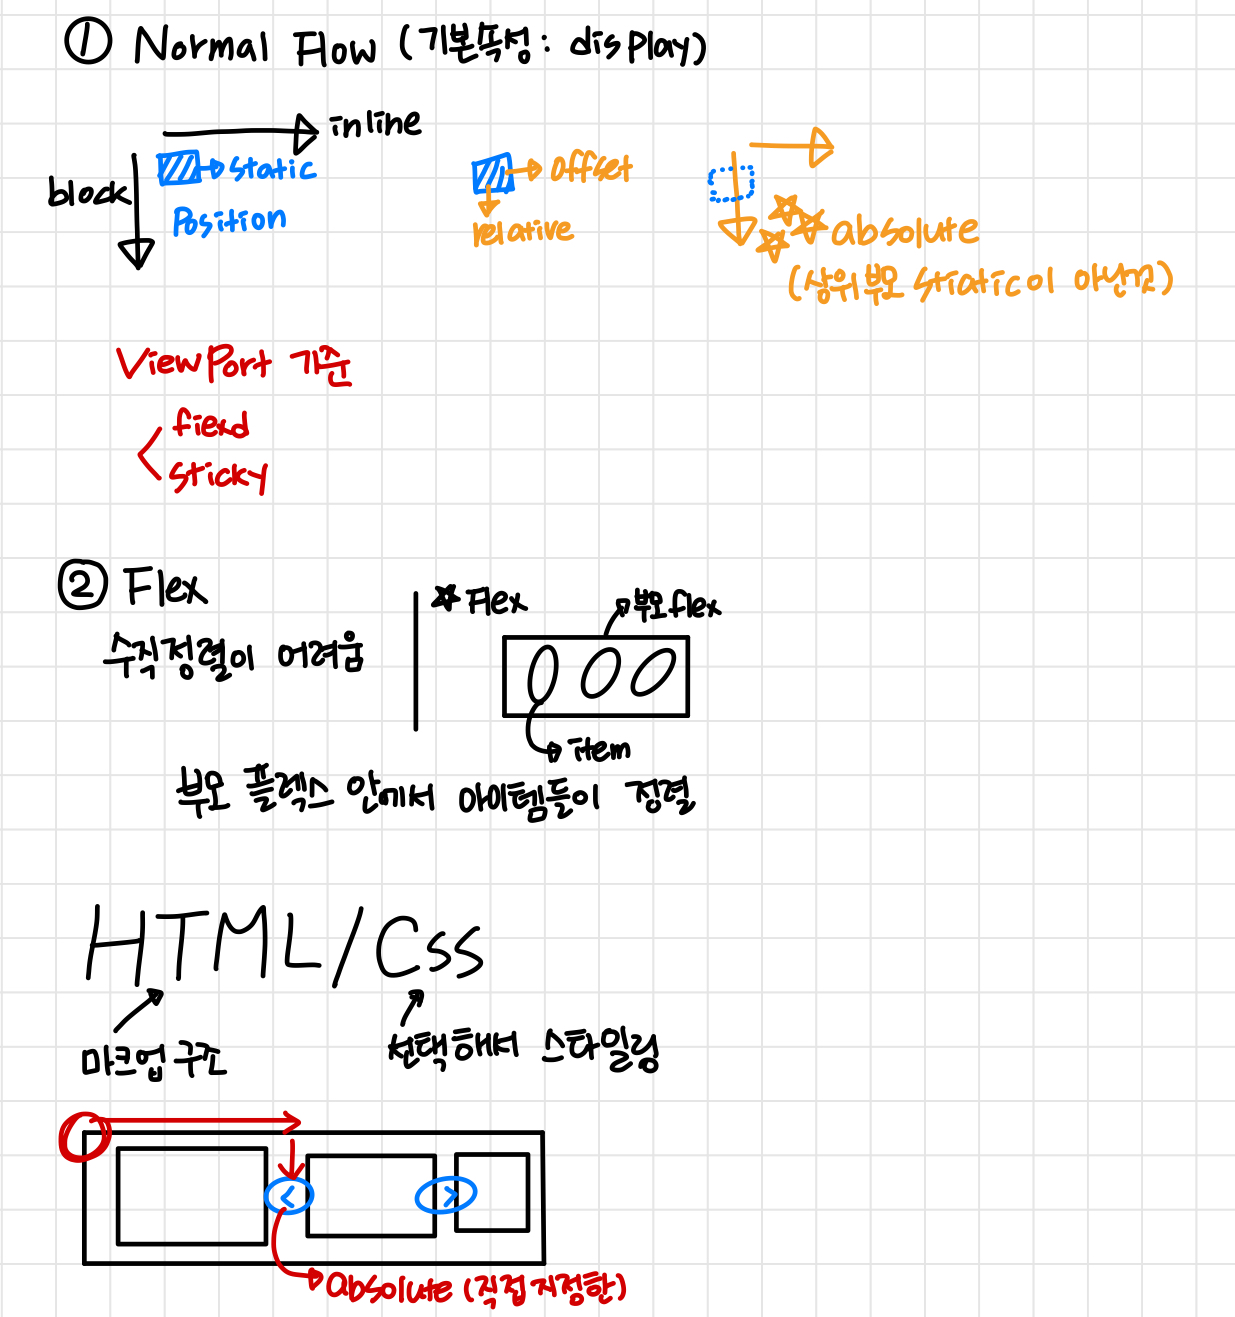 ① Normal Flow (기본속성: display)
inline
block
static
Position
offset
relative
absolute
(상위부모 static이 아닌것)
ViewPort 기준
fiexd
sticky
② Flex
수직정렬이 어려움
Flex
부모 flex
item
부모 플렉스 안에서 아이템들이 정렬
HTML/Css
마크업 구조
선택해서 스타일링
<
>
absolute (직접 지정함)